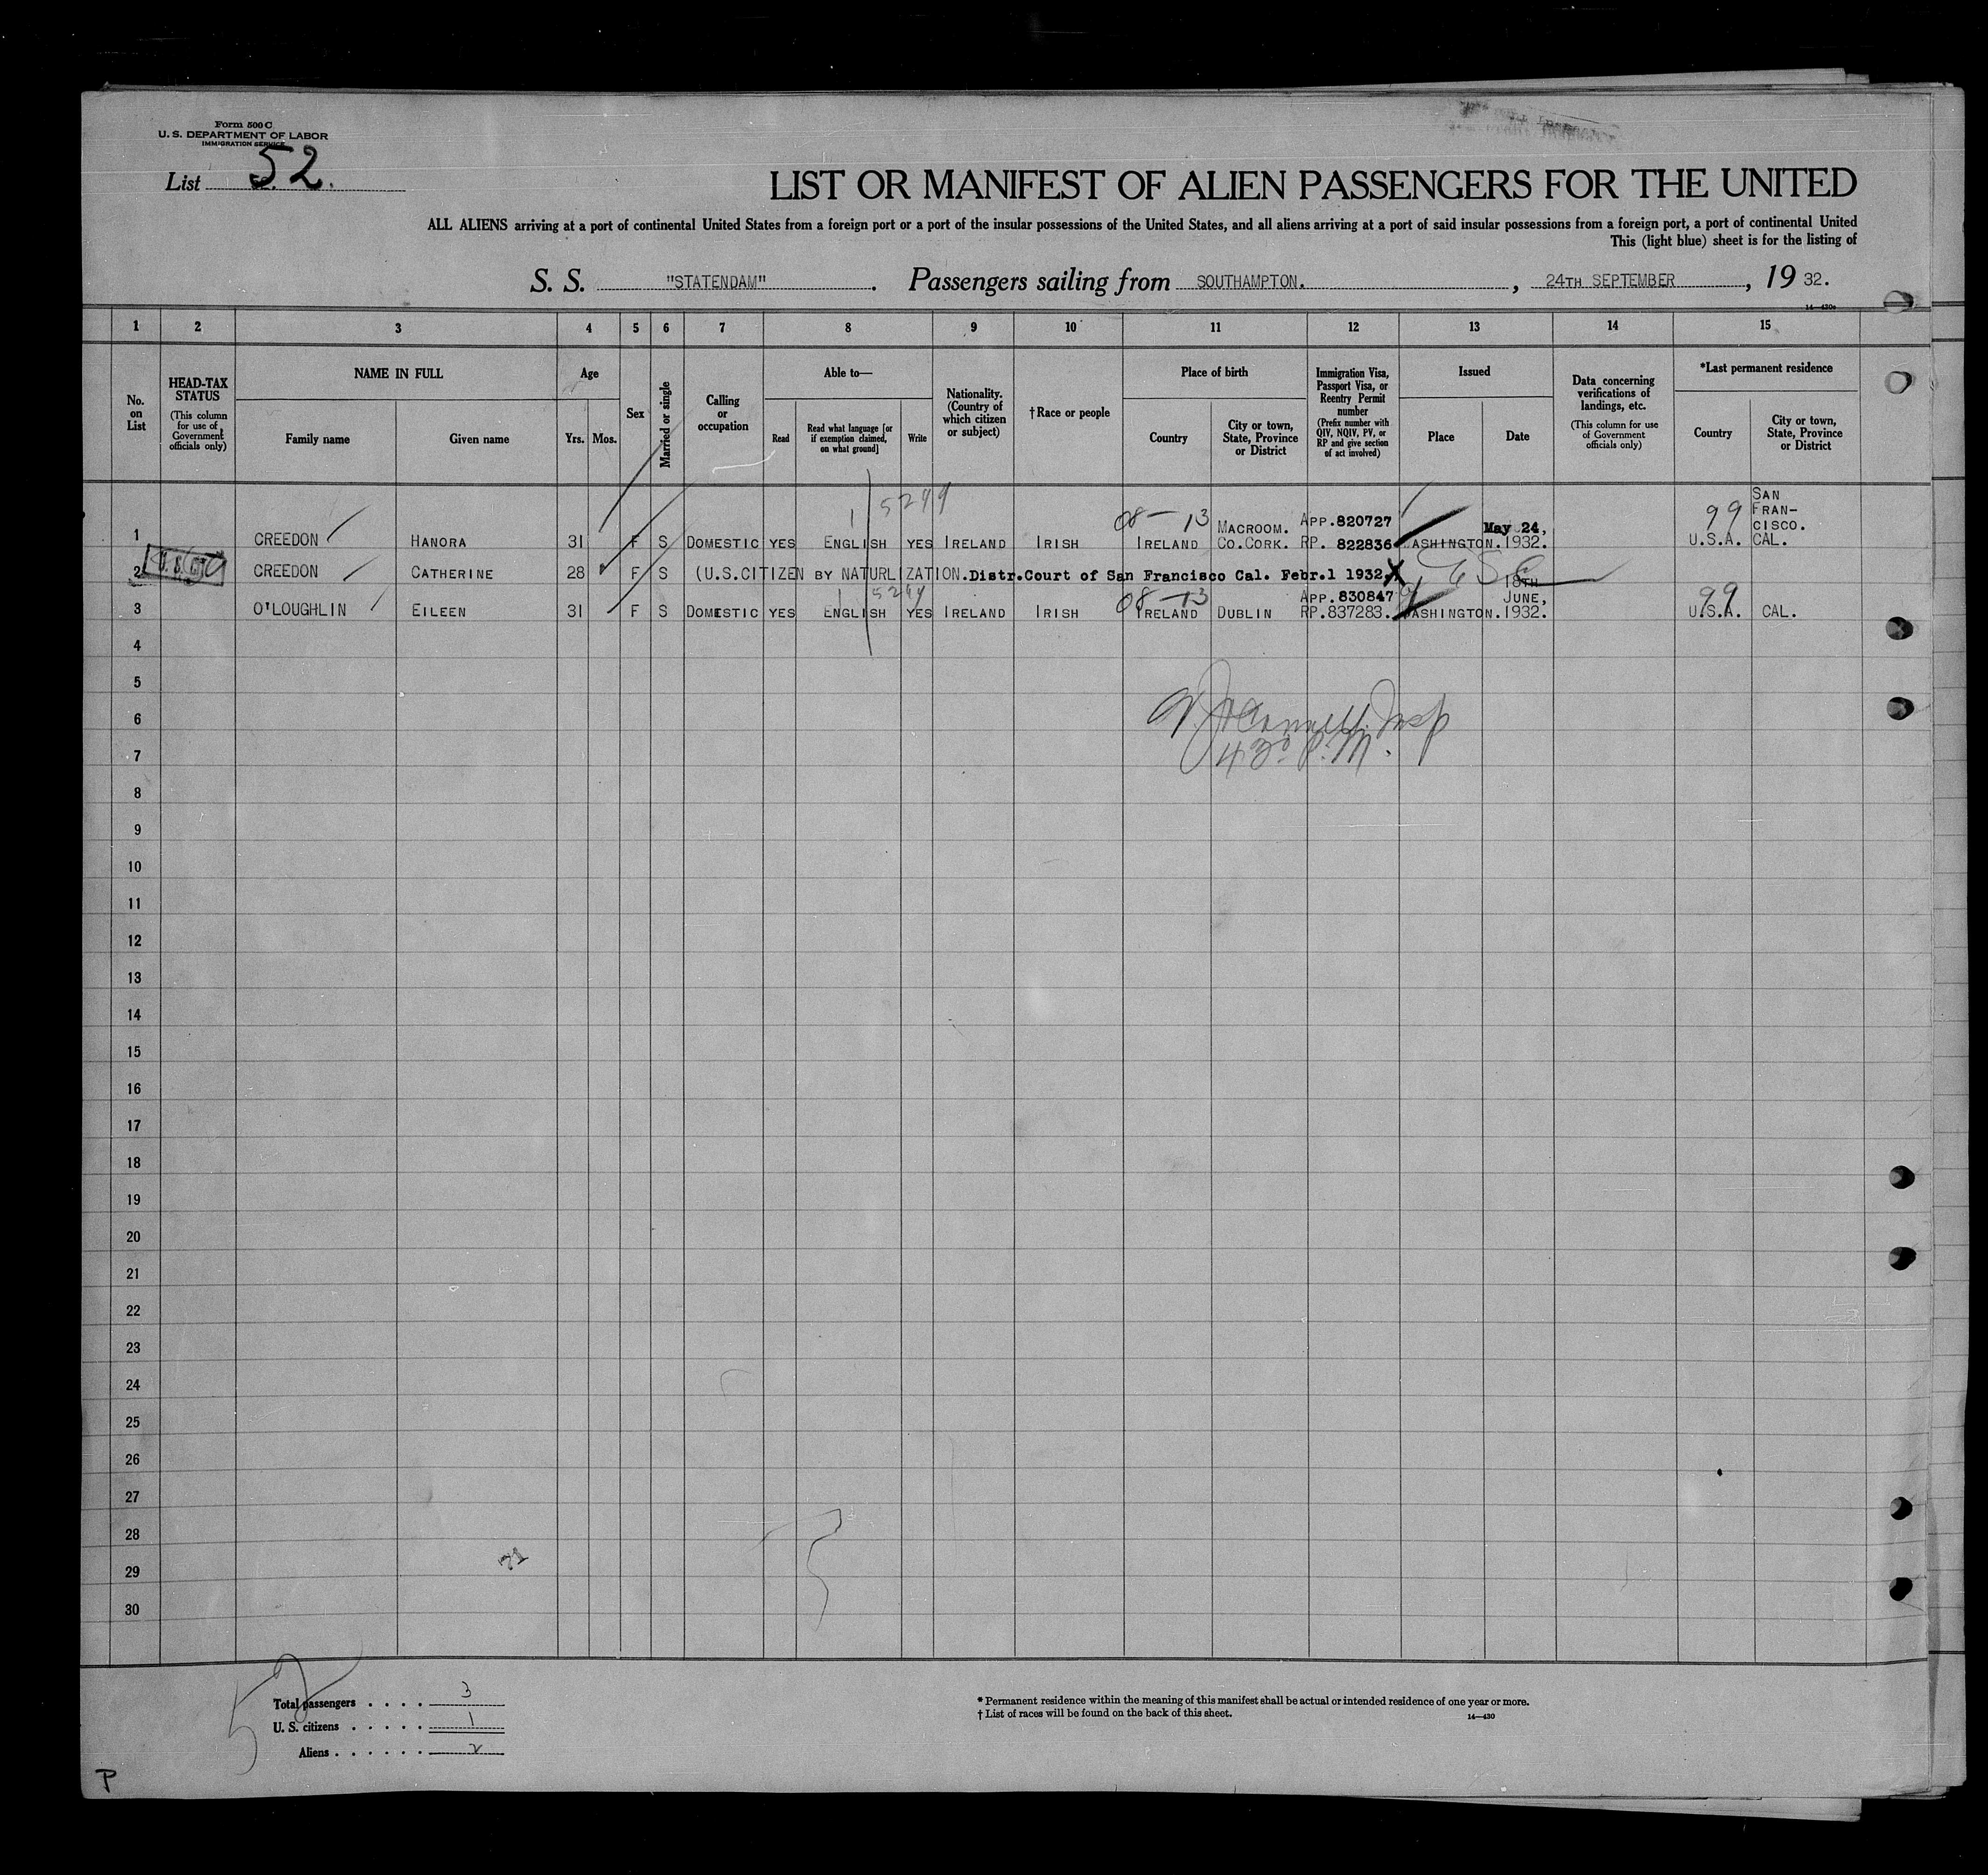 Form 500 C
U. S. DEPARTMENT OF LABOR
IMMIGRATION SERVICE
List 52.
LIST OR MANIFEST OF ALIEN PASSENGERS FOR THE UNITED
ALL ALIENS arriving at a port of continental United States from a foreign port or a port of the insular possessions of the United States, and all aliens arriving at a port of said insular possessions from a foreign port, a port of continental United
This (light blue) sheet is for the listing of
S. S. "STATENDAM". Passengers sailing from SOUTHAMPTON. , 24TH SEPTEMBER , 19 32.
14—430a
1 2 3 4 5 6 7 8 9 10 11 12 13 14 15
No. on List
HEAD-TAX STATUS
(This column for use of Government officials only)
NAME IN FULL
Family name
Given name
Age
Yrs. Mos.
Sex
Married or single
Calling or occupation
Able to—
Read
Read what language [or if exemption claimed, on what ground]
Write
Nationality. (Country of which citizen or subject)
†Race or people
Place of birth
Country
City or town, State, Province or District
Immigration Visa, Passport Visa, or Reentry Permit number
(Prefix number with QIV, NQIV, PV, or RP and give section of act involved)
Issued
Place
Date
Data concerning verifications of landings, etc.
(This column for use of Government officials only)
*Last permanent residence
Country
City or town, State, Province or District
5299
08—13
99
1 CREEDON HANORA 31 F S DOMESTIC YES ENGLISH YES IRELAND IRISH IRELAND MACROOM. CO.CORK. APP.820727 RP. 822836 WASHINGTON. May 24, 1932. U.S.A. SAN FRAN-CISCO. CAL.
2 CREEDON CATHERINE 28 F S (U.S.CITIZEN BY NATURLIZATION.Distr.Court of San Francisco Cal. Febr.1 1932.
5299
08—13
99
3 O'LOUGHLIN EILEEN 31 F S DOMESTIC YES ENGLISH YES IRELAND IRISH IRELAND DUBLIN APP.830847 RP.837283. WASHINGTON. 18TH JUNE, 1932. U.S.A. CAL.
4
5
6
7
8
9
10
11
12
13
14
15
16
17
18
19
20
21
22
23
24
25
26
27
28
29
30
52
Total passengers . . . . 3
U. S. citizens . . . . . 1
Aliens . . . . . . 2
* Permanent residence within the meaning of this manifest shall be actual or intended residence of one year or more.
† List of races will be found on the back of this sheet.
14—430
P